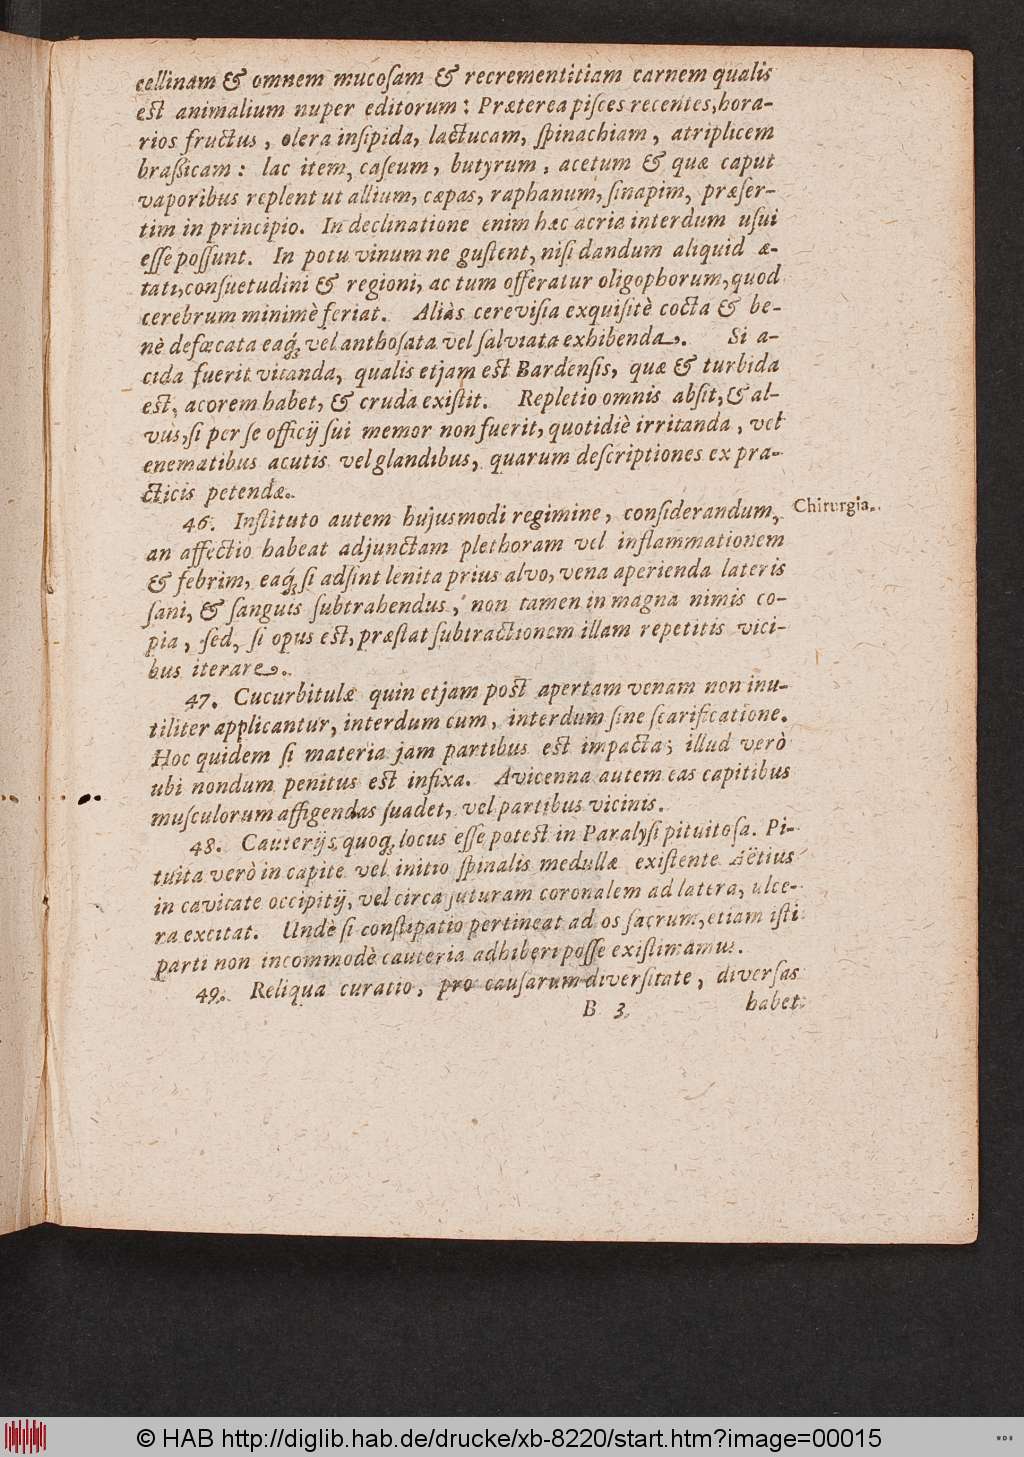 cellinam & omnem mucoſam & recrementitiam carnem qualis
est animalium nuper editorum: Præterea piſces recentes, hora-
rios fructus, olera inſipida, lactucam, ſpinachiam, atriplicem
braſſicam: lac item, caſeum, butyrum, acetum & quæ caput
vaporibus replent ut allium, cæpas, raphanum, ſinapim, præſer-
tim in principio. In declinatione enim hæc acria interdum uſui
eſſe poſſunt. In potu vinum ne guſtent, niſi dandum aliquid æ-
tati, conſuetudini & regioni, ac tum offeratur oligophorum, quod
cerebrum minimè feriat. Aliàs cereviſia exquiſitè cocta & be-
nè defæcata eaq́; vel anthoſata vel ſalviata exhibenda. Si a-
cida fuerit vitanda, qualis etjam est Bardenſis, quæ & turbida
est, acorem habet, & cruda exiſtit. Repletio omnis abſit, & al-
vus, ſi per ſe officij ſui memor non fuerit, quotidiè irritanda, vel
enematibus acutis vel glandibus, quarum deſcriptiones ex pra-
cticis petendæ.
46. Inſtituto autem hujusmodi regimine, conſiderandum, Chirurgia.
an affectio habeat adjunctam plethoram vel inflammationem
& febrim, eaq́; ſi adſint lenita prius alvo, vena aperienda lateris
ſani, & ſanguis ſubtrahendus, non tamen in magna nimis co-
pia, ſed, ſi opus est, præſtat ſubtractionem illam repetitis vici-
bus iterare.
47. Cucurbitulæ quin etjam post apertam venam non inu-
tiliter applicantur, interdum cum, interdum ſine ſcarificatione.
Hoc quidem ſi materia jam partibus est impacta; illud verò
ubi nondum penitus est infixa. Avicenna autem eas capitibus
muſculorum affigendas ſuadet, vel partibus vicinis.
48. Cauterijs quoq; locus eſſe potest in Paralyſi pituitoſa. Pi-
tuita verò in capite vel initio ſpinalis medullæ exiſtente Aëtius
in cavitate occipitij, vel circa ſuturam coronalem ad latera, ulce-
ra excitat. Undè ſi conſtipatio pertineat ad os ſacrum, etiam iſti
parti non incommodè cauteria adhiberi poſſe exiſtimamus.
49. Reliqua curatio, pro cauſarum diverſitate, diverſas
B 3 habet
© HAB http://diglib.hab.de/drucke/xb-8220/start.htm?image=00015